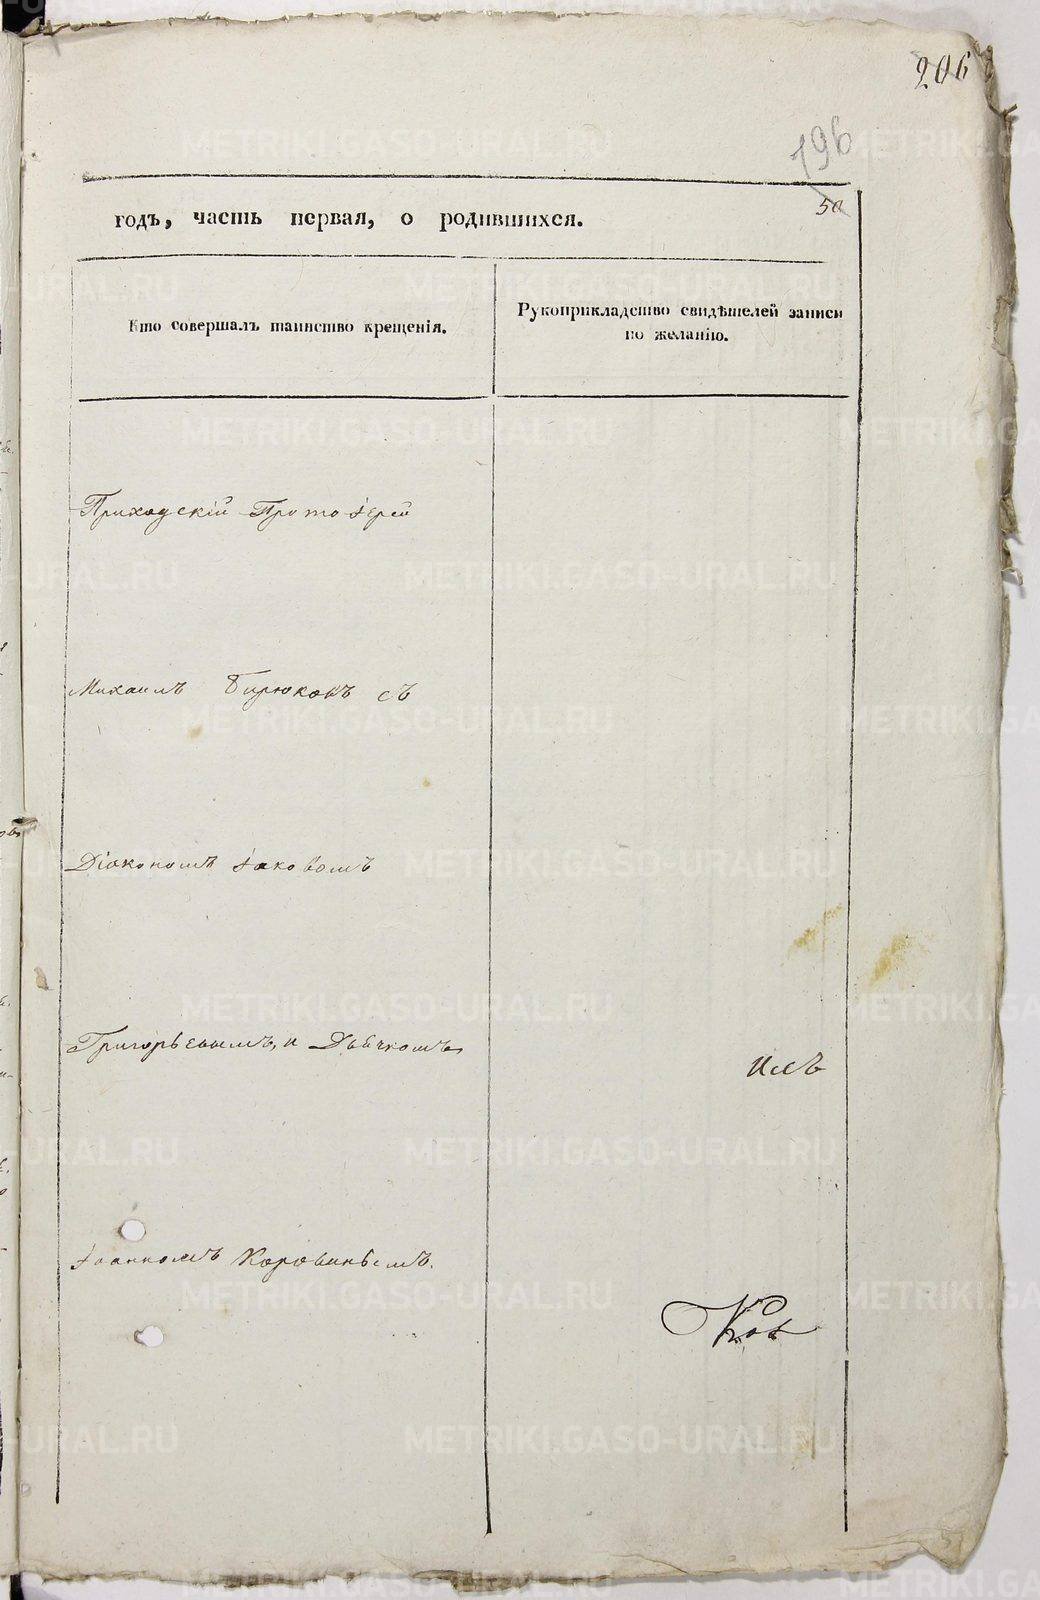 206
196
50
годъ, часть первая, о родившихся.
Кто совершалъ таинство крещенія.
Рукоприкладство свидѣтелей записи
по желанію.
Приходскій Протоіерей
Михаилъ Бирюковъ съ
Діакономъ Іаковомъ
Григорьевымъ, и Дьячкомъ
Іоанномъ Коровинымъ.
METRIKI.GASO-URAL.RU